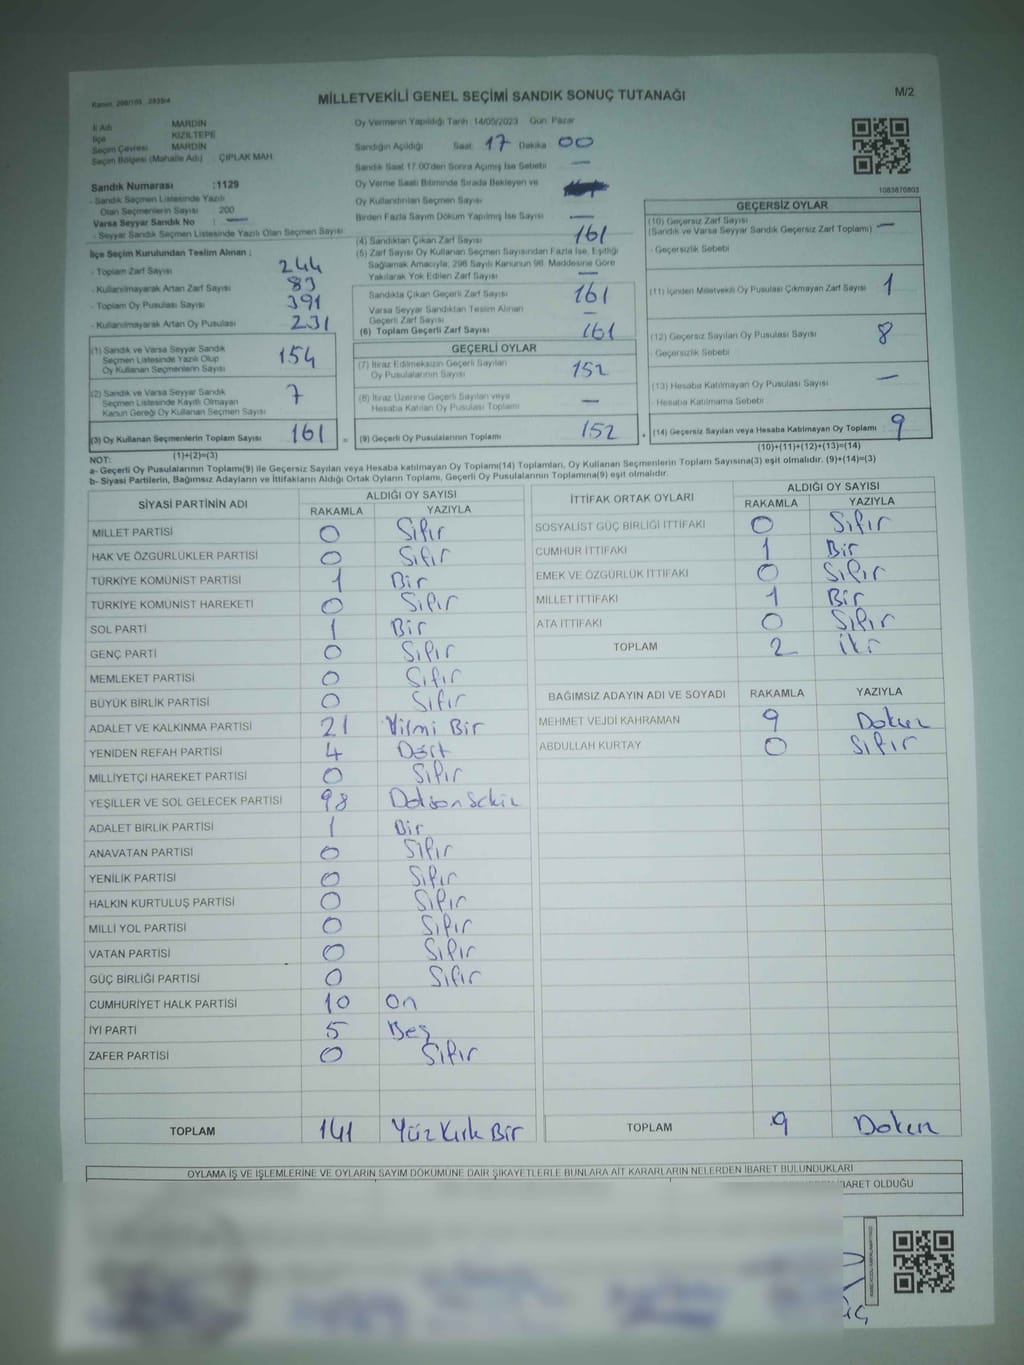 MİLLETVEKİLİ GENEL SEÇİMİ SANDIK SONUÇ TUTANAĞI
M/2
İl Adı MARDİN
İlçe KIZILTEPE
Seçim Çevresi MARDİN
Seçim Bölgesi (Mahalle Adı) ÇIPLAK MAH.
Sandık Numarası :1129
- Sandık Seçmen Listesinde Yazılı
Olan Seçmenlerin Sayısı : 200
Varsa Seyyar Sandık No : —
- Seyyar Sandık Seçmen Listesinde Yazılı Olan Seçmen Sayısı:
Oy Vermenin Yapıldığı Tarih 14/05/2023 Gün: Pazar
Sandığın Açıldığı Saat 17 Dakika 00
Sandık Saat 17:00'den Sonra Açılmış İse Sebebi —
Oy Verme Saati Bitiminde Sırada Bekleyen ve
Oy Kullandırılan Seçmen Sayısı
Birden Fazla Sayım Döküm Yapılmış İse Sayısı —
1083670803
İlçe Seçim Kurulundan Teslim Alınan ;
- Toplam Zarf Sayısı 244
- Kullanılmayarak Artan Zarf Sayısı 83
- Toplam Oy Pusulası Sayısı 391
- Kullanılmayarak Artan Oy Pusulası 231
(1) Sandık ve Varsa Seyyar Sandık
Seçmen Listesinde Yazılı Olup
Oy Kullanan Seçmenlerin Sayısı 154
(2) Sandık ve Varsa Seyyar Sandık
Seçmen Listesinde Kayıtlı Olmayan
Kanun Gereği Oy Kullanan Seçmen Sayısı 7
(3) Oy Kullanan Seçmenlerin Toplam Sayısı 161
(1)+(2)=(3)
(4) Sandıktan Çıkan Zarf Sayısı 161
(5) Zarf Sayısı Oy Kullanan Seçmen Sayısından Fazla İse, Eşitliği
Sağlamak Amacıyla, 298 Sayılı Kanunun 98. Maddesine Göre
Yakılarak Yok Edilen Zarf Sayısı —
Sandıkta Çıkan Geçerli Zarf Sayısı 161
Varsa Seyyar Sandıktan Teslim Alınan
Geçerli Zarf Sayısı —
(6) Toplam Geçerli Zarf Sayısı 161
GEÇERLİ OYLAR
(7) İtiraz Edilmeksizin Geçerli Sayılan
Oy Pusulalarının Sayısı 152
(8) İtiraz Üzerine Geçerli Sayılan veya
Hesaba Katılan Oy Pusulası Toplamı —
= (9) Geçerli Oy Pusulalarının Toplamı 152
GEÇERSİZ OYLAR
(10) Geçersiz Zarf Sayısı
(Sandık ve Varsa Seyyar Sandık Geçersiz Zarf Toplamı) —
- Geçersizlik Sebebi
(11) İçinden Milletvekili Oy Pusulası Çıkmayan Zarf Sayısı 1
(12) Geçersiz Sayılan Oy Pusulası Sayısı 8
- Geçersizlik Sebebi
(13) Hesaba Katılmayan Oy Pusulası Sayısı —
- Hesaba Katılmama Sebebi
+ (14) Geçersiz Sayılan veya Hesaba Katılmayan Oy Toplamı 9
(10)+(11)+(12)+(13)=(14)
NOT:
a- Geçerli Oy Pusulalarının Toplamı(9) ile Geçersiz Sayılan veya Hesaba katılmayan Oy Toplamı(14) Toplamları, Oy Kullanan Seçmenlerin Toplam Sayısına(3) eşit olmalıdır. (9)+(14)=(3)
b- Siyasi Partilerin, Bağımsız Adayların ve İttifakların Aldığı Ortak Oyların Toplamı, Geçerli Oy Pusulalarının Toplamına(9) eşit olmalıdır.
SİYASİ PARTİNİN ADI ALDIĞI OY SAYISI
RAKAMLA YAZIYLA
MİLLET PARTİSİ 0 Sıfır
HAK VE ÖZGÜRLÜKLER PARTİSİ 0 Sıfır
TÜRKİYE KOMÜNİST PARTİSİ 1 Bir
TÜRKİYE KOMÜNİST HAREKETİ 0 Sıfır
SOL PARTİ 1 Bir
GENÇ PARTİ 0 Sıfır
MEMLEKET PARTİSİ 0 Sıfır
BÜYÜK BİRLİK PARTİSİ 0 Sıfır
ADALET VE KALKINMA PARTİSİ 21 Yirmi Bir
YENİDEN REFAH PARTİSİ 4 Dört
MİLLİYETÇİ HAREKET PARTİSİ 0 Sıfır
YEŞİLLER VE SOL GELECEK PARTİSİ 98 Doksan Sekiz
ADALET BİRLİK PARTİSİ 1 Bir
ANAVATAN PARTİSİ 0 Sıfır
YENİLİK PARTİSİ 0 Sıfır
HALKIN KURTULUŞ PARTİSİ 0 Sıfır
MİLLİ YOL PARTİSİ 0 Sıfır
VATAN PARTİSİ 0 Sıfır
GÜÇ BİRLİĞİ PARTİSİ 0 Sıfır
CUMHURİYET HALK PARTİSİ 10 On
İYİ PARTİ 5 Beş
ZAFER PARTİSİ 0 Sıfır
TOPLAM 141 Yüz Kırk Bir
İTTİFAK ORTAK OYLARI ALDIĞI OY SAYISI
RAKAMLA YAZIYLA
SOSYALİST GÜÇ BİRLİĞİ İTTİFAKI 0 Sıfır
CUMHUR İTTİFAKI 1 Bir
EMEK VE ÖZGÜRLÜK İTTİFAKI 0 Sıfır
MİLLET İTTİFAKI 1 Bir
ATA İTTİFAKI 0 Sıfır
TOPLAM 2 İki
BAĞIMSIZ ADAYIN ADI VE SOYADI RAKAMLA YAZIYLA
MEHMET VEJDİ KAHRAMAN 9 Dokuz
ABDULLAH KURTAY 0 Sıfır
TOPLAM 9 Dokuz
OYLAMA İŞ VE İŞLEMLERİNE VE OYLARIN SAYIM DÖKÜMÜNE DAİR ŞİKAYETLERLE BUNLARA AİT KARARLARIN NELERDEN İBARET BULUNDUKLARI
İBARET OLDUĞU